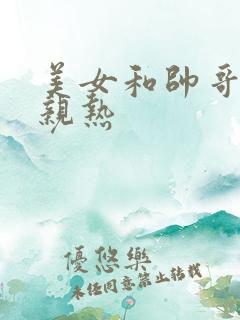 美女和帥哥
親熱
優悠樂
未任同意禁止轉載